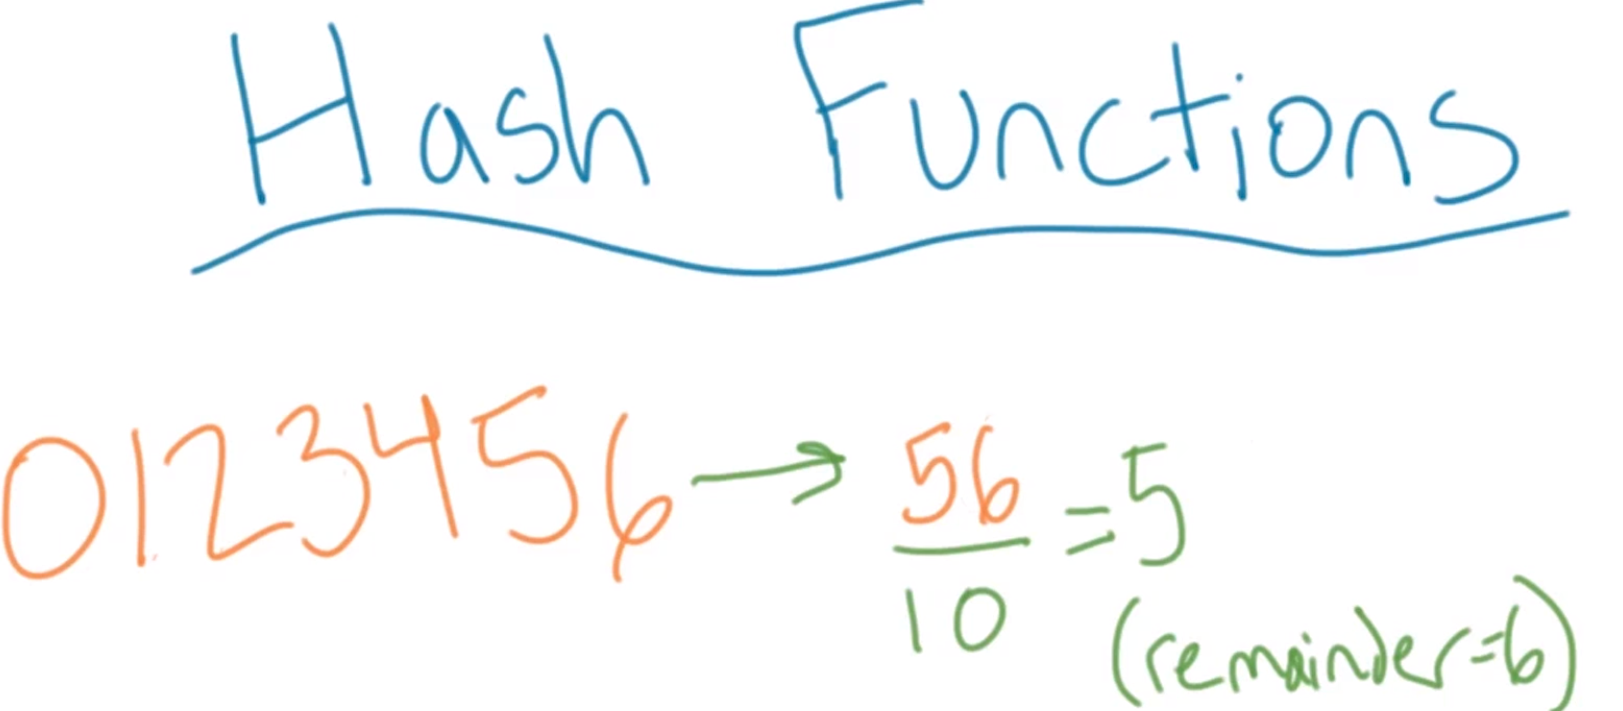 Hash Functions
0123456 → 56/10 = 5
(remainder=6)